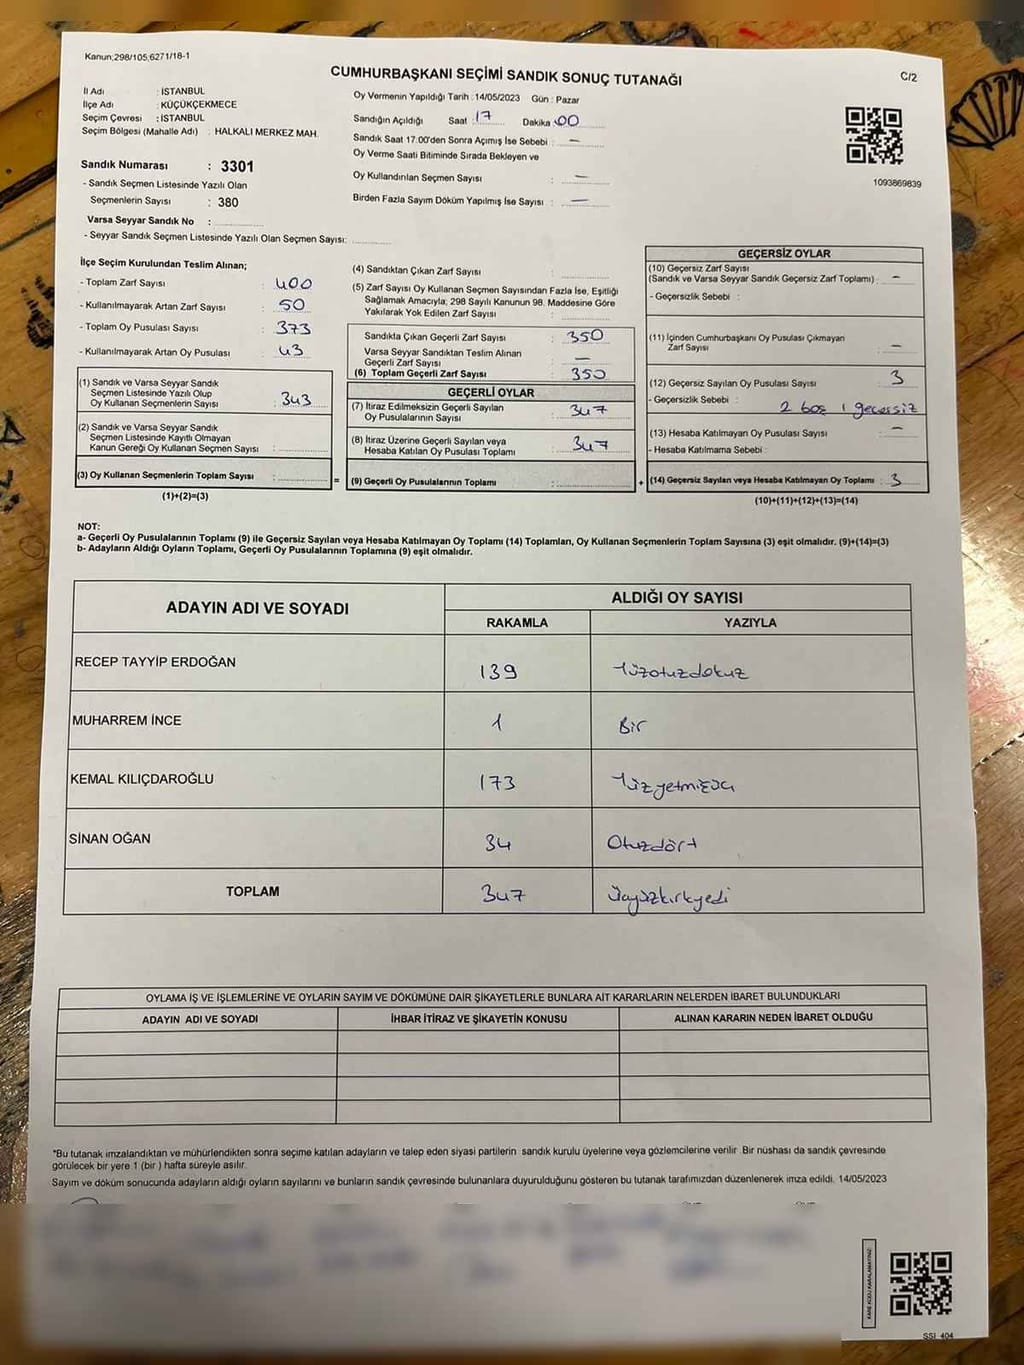 Kanun;298/105;6271/18-1
CUMHURBAŞKANI SEÇİMİ SANDIK SONUÇ TUTANAĞI
C/2
İl Adı : İSTANBUL
İlçe Adı : KÜÇÜKÇEKMECE
Seçim Çevresi : İSTANBUL
Seçim Bölgesi (Mahalle Adı) : HALKALI MERKEZ MAH.
Sandık Numarası : 3301
- Sandık Seçmen Listesinde Yazılı Olan
Seçmenlerin Sayısı : 380
Varsa Seyyar Sandık No :
- Seyyar Sandık Seçmen Listesinde Yazılı Olan Seçmen Sayısı:
Oy Vermenin Yapıldığı Tarih : 14/05/2023 Gün : Pazar
Sandığın Açıldığı Saat : 17 Dakika : 00
Sandık Saat 17:00'den Sonra Açımış İse Sebebi : —
Oy Verme Saati Bitiminde Sırada Bekleyen ve
Oy Kullandırılan Seçmen Sayısı : —
Birden Fazla Sayım Döküm Yapılmış İse Sayısı : —
1093869839
İlçe Seçim Kurulundan Teslim Alınan;
- Toplam Zarf Sayısı : 400
- Kullanılmayarak Artan Zarf Sayısı : 50
- Toplam Oy Pusulası Sayısı : 373
- Kullanılmayarak Artan Oy Pusulası : 43
(1) Sandık ve Varsa Seyyar Sandık
Seçmen Listesinde Yazılı Olup
Oy Kullanan Seçmenlerin Sayısı : 343
(2) Sandık ve Varsa Seyyar Sandık
Seçmen Listesinde Kayıtlı Olmayan
Kanun Gereği Oy Kullanan Seçmen Sayısı :
(3) Oy Kullanan Seçmenlerin Toplam Sayısı :
(1)+(2)=(3)
(4) Sandıktan Çıkan Zarf Sayısı :
(5) Zarf Sayısı Oy Kullanan Seçmen Sayısından Fazla İse, Eşitliği
Sağlamak Amacıyla; 298 Sayılı Kanunun 98. Maddesine Göre
Yakılarak Yok Edilen Zarf Sayısı :
Sandıkla Çıkan Geçerli Zarf Sayısı : 350
Varsa Seyyar Sandıktan Teslim Alınan
Geçerli Zarf Sayısı : —
(6) Toplam Geçerli Zarf Sayısı : 350
GEÇERLİ OYLAR
(7) İtiraz Edilmeksizin Geçerli Sayılan
Oy Pusulalarının Sayısı : 347
(8) İtiraz Üzerine Geçerli Sayılan veya
Hesaba Katılan Oy Pusulası Toplamı : 347
=
(9) Geçerli Oy Pusulalarının Toplamı :
+
GEÇERSİZ OYLAR
(10) Geçersiz Zarf Sayısı
(Sandık ve Varsa Seyyar Sandık Geçersiz Zarf Toplamı) : —
- Geçersizlik Sebebi :
(11) İçinden Cumhurbaşkanı Oy Pusulası Çıkmayan
Zarf Sayısı : —
(12) Geçersiz Sayılan Oy Pusulası Sayısı : 3
- Geçersizlik Sebebi : 2 boş 1 geçersiz
(13) Hesaba Katılmayan Oy Pusulası Sayısı : —
- Hesaba Katılmama Sebebi :
(14) Geçersiz Sayılan veya Hesaba Katılmayan Oy Toplamı : 3
(10)+(11)+(12)+(13)=(14)
NOT:
a- Geçerli Oy Pusulalarının Toplamı (9) ile Geçersiz Sayılan veya Hesaba Katılmayan Oy Toplamı (14) Toplamları, Oy Kullanan Seçmenlerin Toplam Sayısına (3) eşit olmalıdır. (9)+(14)=(3)
b- Adayların Aldığı Oyların Toplamı, Geçerli Oy Pusulalarının Toplamına (9) eşit olmalıdır.
ADAYIN ADI VE SOYADI
ALDIĞI OY SAYISI
RAKAMLA YAZIYLA
RECEP TAYYİP ERDOĞAN 139 Yüzotuzdokuz
MUHARREM İNCE 1 Bir
KEMAL KILIÇDAROĞLU 173 Yüzyetmişüç
SİNAN OĞAN 34 Otuzdört
TOPLAM 347 Üçyüzkırkyedi
OYLAMA İŞ VE İŞLEMLERİNE VE OYLARIN SAYIM VE DÖKÜMÜNE DAİR ŞİKAYETLERLE BUNLARA AİT KARARLARIN NELERDEN İBARET BULUNDUKLARI
ADAYIN ADI VE SOYADI İHBAR İTİRAZ VE ŞİKAYETİN KONUSU ALINAN KARARIN NEDEN İBARET OLDUĞU
*Bu tutanak imzalandıktan ve mühürlendikten sonra seçime katılan adayların ve talep eden siyasi partilerin sandık kurulu üyelerine veya gözlemcilerine verilir. Bir nüshası da sandık çevresinde
görülecek bir yere 1 (bir ) hafta süreyle asılır.
Sayım ve döküm sonucunda adayların aldığı oyların sayılarını ve bunların sandık çevresinde bulunanlara duyurulduğunu gösteren bu tutanak tarafımızdan düzenlenerek imza edildi. 14/05/2023
KARE KODU KARALAMAYINIZ!
SSİ_404